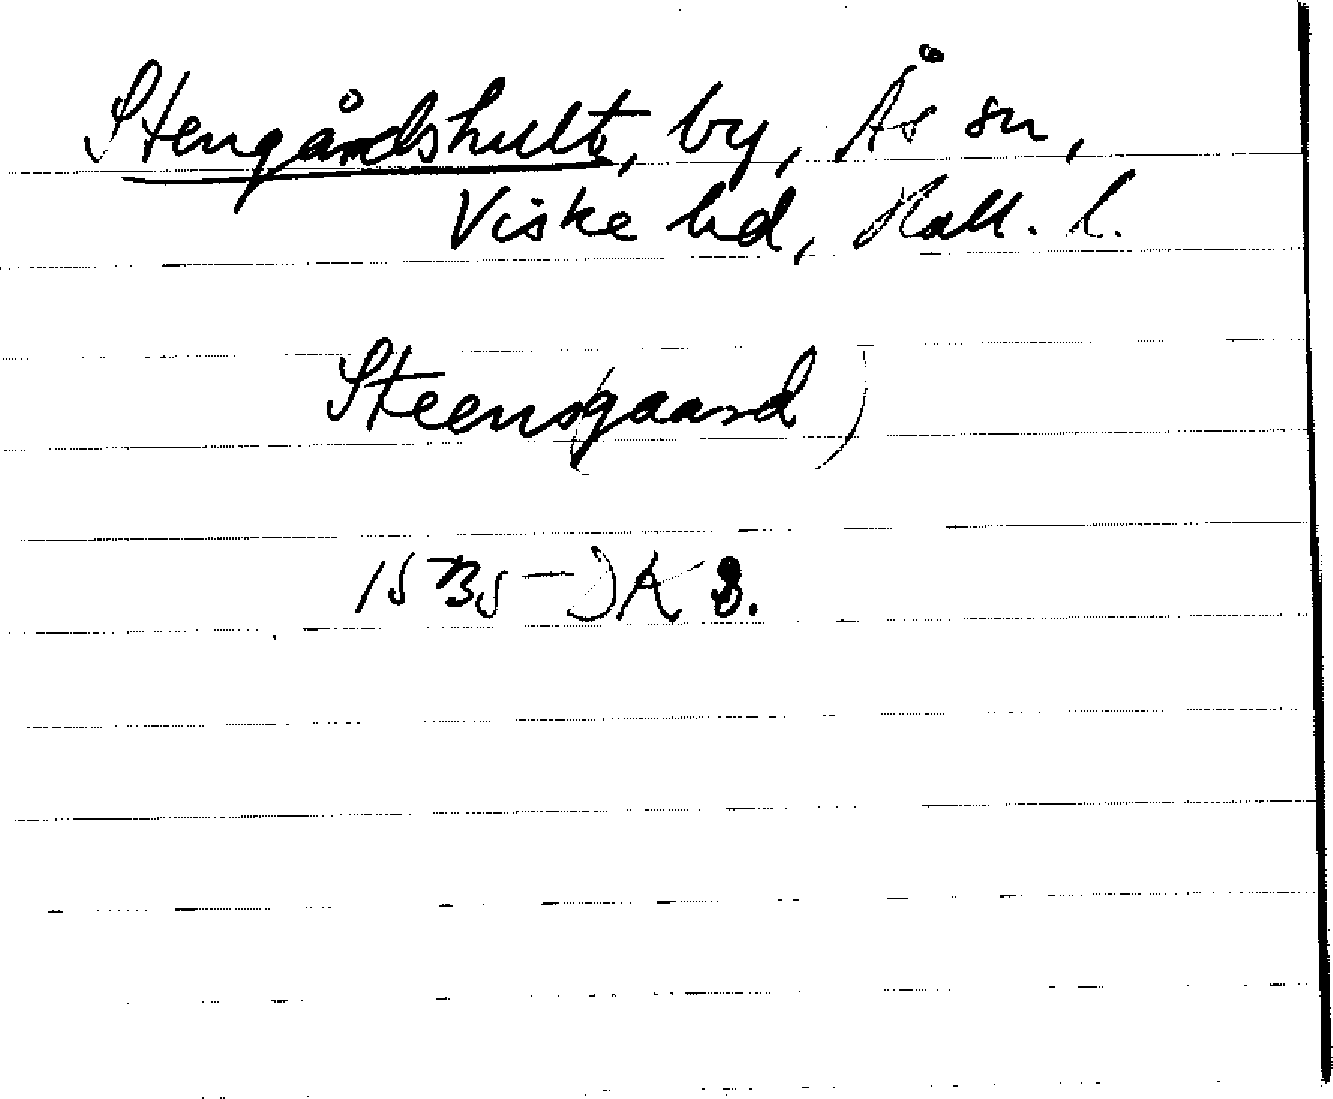 Stengårdshult, by, Ås sn,
Viske hd, Hall. l.
Steensgaard)
1535 - JK B.